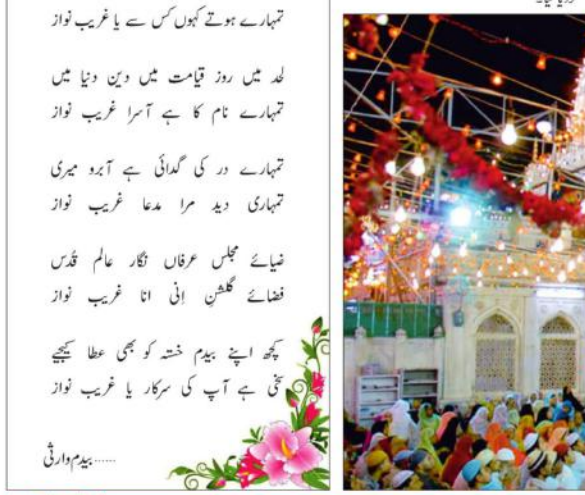 تمہارے ہوتے کہوں کس سے یا غریب نواز
لحد میں روز قیامت میں دین دنیا میں
تمہارے نام کا ہے آسرا غریب نواز
تمہارے در کی گدائی ہے آبرو میری
تمہاری دید مرا مدعا غریب نواز
ضیائے مجلس عرفاں نگار عالم قُدس
فضائے گلشنِ اِنی انا غریب نواز
کچھ اپنے بیدم خستہ کو بھی عطا کیجیے
سخی ہے آپ کی سرکار یا غریب نواز
......بیدم وارثی